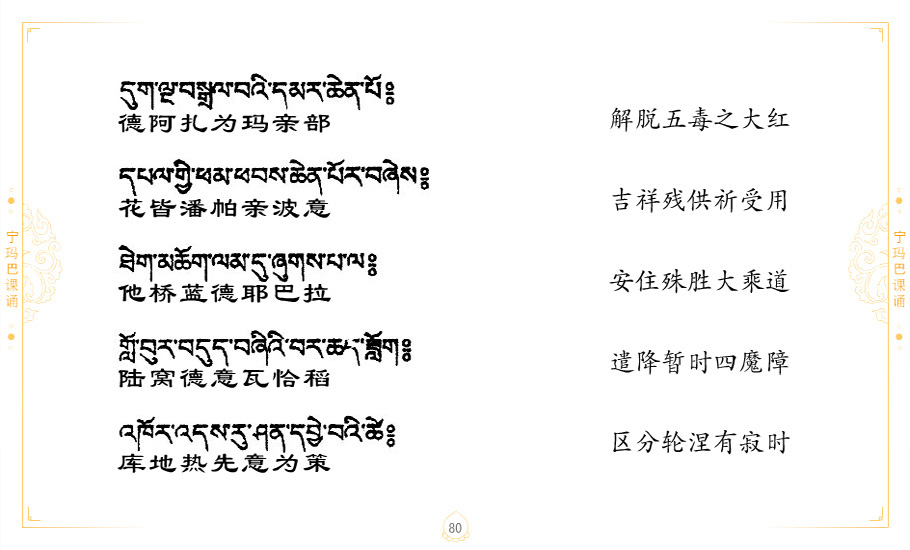 དུག་ལྔ་བསྒྲལ་བའི་དམར་ཆེན་པོ༔
德阿扎为玛亲部
解脱五毒之大红
དཔལ་གྱི་ཕམ་ཕབས་ཆེན་པོར་བཞེས༔
花皆潘帕亲波意
吉祥残供祈受用
ཐེག་མཆོག་ལམ་དུ་ཞུགས་པ་ལ༔
他桥蓝德耶巴拉
安住殊胜大乘道
གློ་བུར་བདུད་བཞིའི་བར་ཆད་བཟློག༔
陆窝德意瓦恰稻
遣降暂时四魔障
འཁོར་འདས་རུ་ཤན་དབྱེ་བའི་ཚེ༔
库地热先意为策
区分轮涅有寂时
宁玛巴课诵
宁玛巴课诵
80